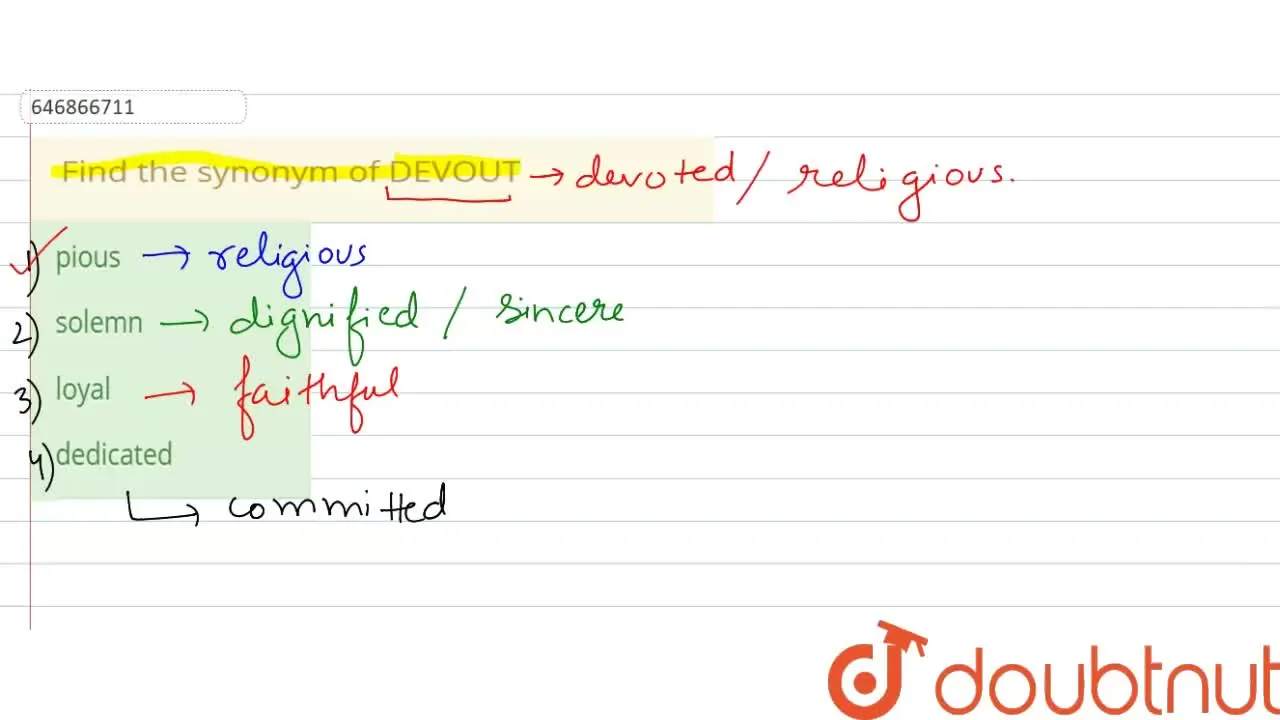 646866711
Find the synonym of DEVOUT → devoted / religious.
1) pious → religious
2) solemn → dignified / sincere
3) loyal → faithful
4) dedicated
↳ committed
doubtnut